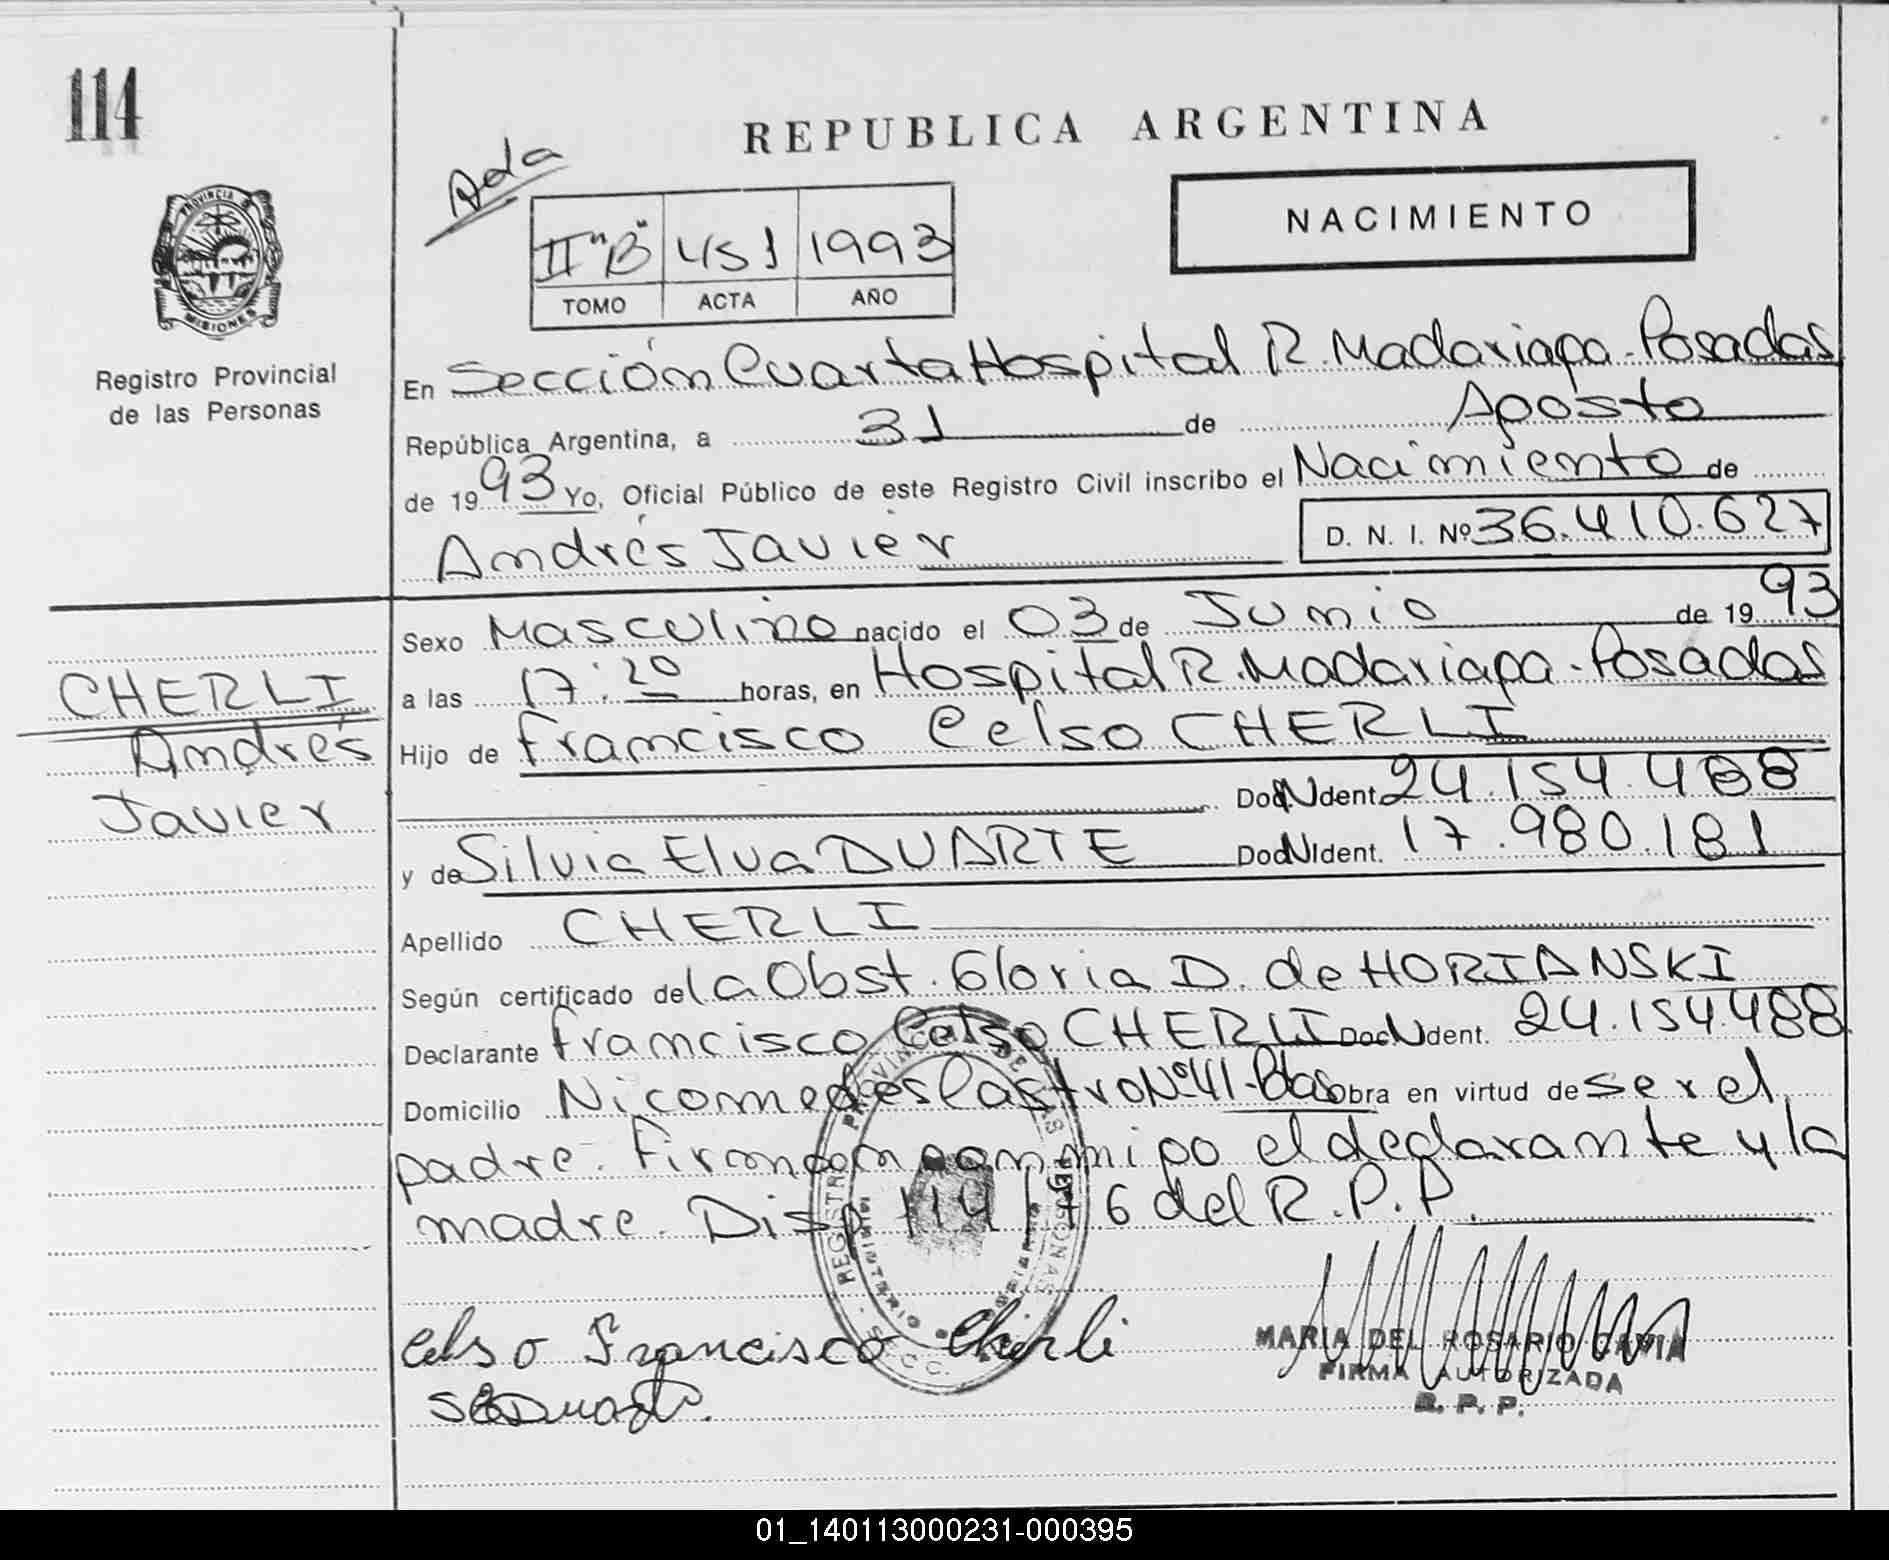 114
REPUBLICA ARGENTINA
Ada
NACIMIENTO
II "B" 451 1993
TOMO ACTA AÑO
PROVINCIA DE MISIONES
Registro Provincial
de las Personas
En Sección Cuarta Hospital R. Madariaga - Posadas
República Argentina, a 31 de Agosto
de 1993 Yo, Oficial Público de este Registro Civil inscribo el Nacimiento de
Andrés Javier D. N. I. Nº 36.410.627
Sexo Masculino nacido el 03 de Junio de 1993
a las 17:20 horas, en Hospital R. Madariaga - Posadas
CHERLI
Andrés
Javier
Hijo de Francisco Celso CHERLI
DocNIdent. 24.154.488
y de Silvia Elva DUARTE DocNIdent. 17.980.181
Apellido CHERLI
Según certificado de la Obst. Gloria D. de HORIANSKI
Declarante Francisco Celso CHERLI DocNIdent. 24.154.488
Domicilio Nicomedes Castro Nº 41 - Pdas obra en virtud de ser el
padre. Firman conmigo el declarante y la
madre. Disp 114/76 del R.P.P.
REGISTRO PROVINCIAL DE LAS PERSONAS
MINISTERIO DE GOBIERNO
Celso Francisco Cherli
SEDuarte.
MARIA DEL ROSARIO GAVIA
FIRMA AUTORIZADA
R. P. P.
01_140113000231-000395